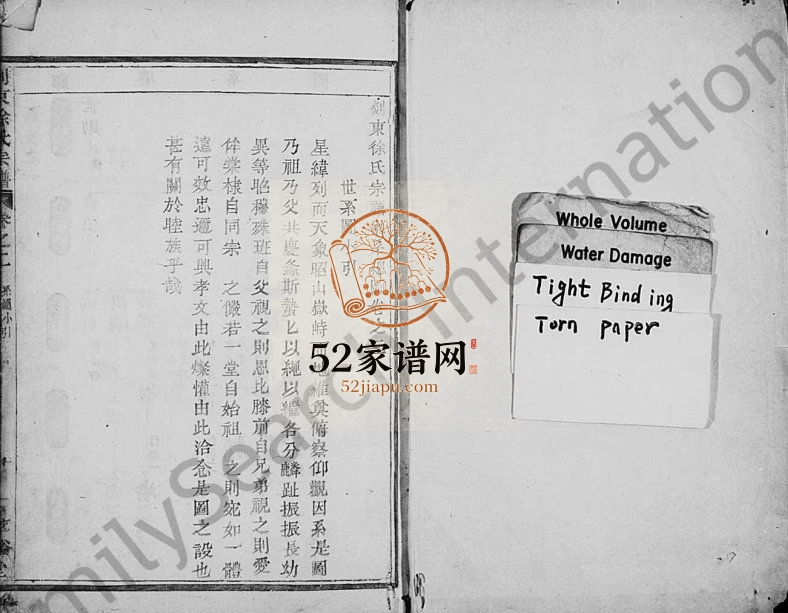 剡東徐氏宗譜 卷之
世系圖 引
星緯列而天象昭山嶽峙 維奠俯察仰觀因系是圖
乃祖乃父共慶螽斯蟄匕以繩以繼各分麟趾振振長幼
異等昭穆殊班自父視之則恩比膝前自兄弟視之則愛
侔棠棣自同宗 之儼若一堂自始祖 之則宛如一體
遠可效忠邇可興孝文由此燦懽由此洽念是圖之設也
甚有關於睦族乎哉
剡東徐氏宗譜
卷之一
系圖小引
52家谱网
52jiapu.com
Whole Volume
Water Damage
Tight Binding
Torn paper
milySearch Internation